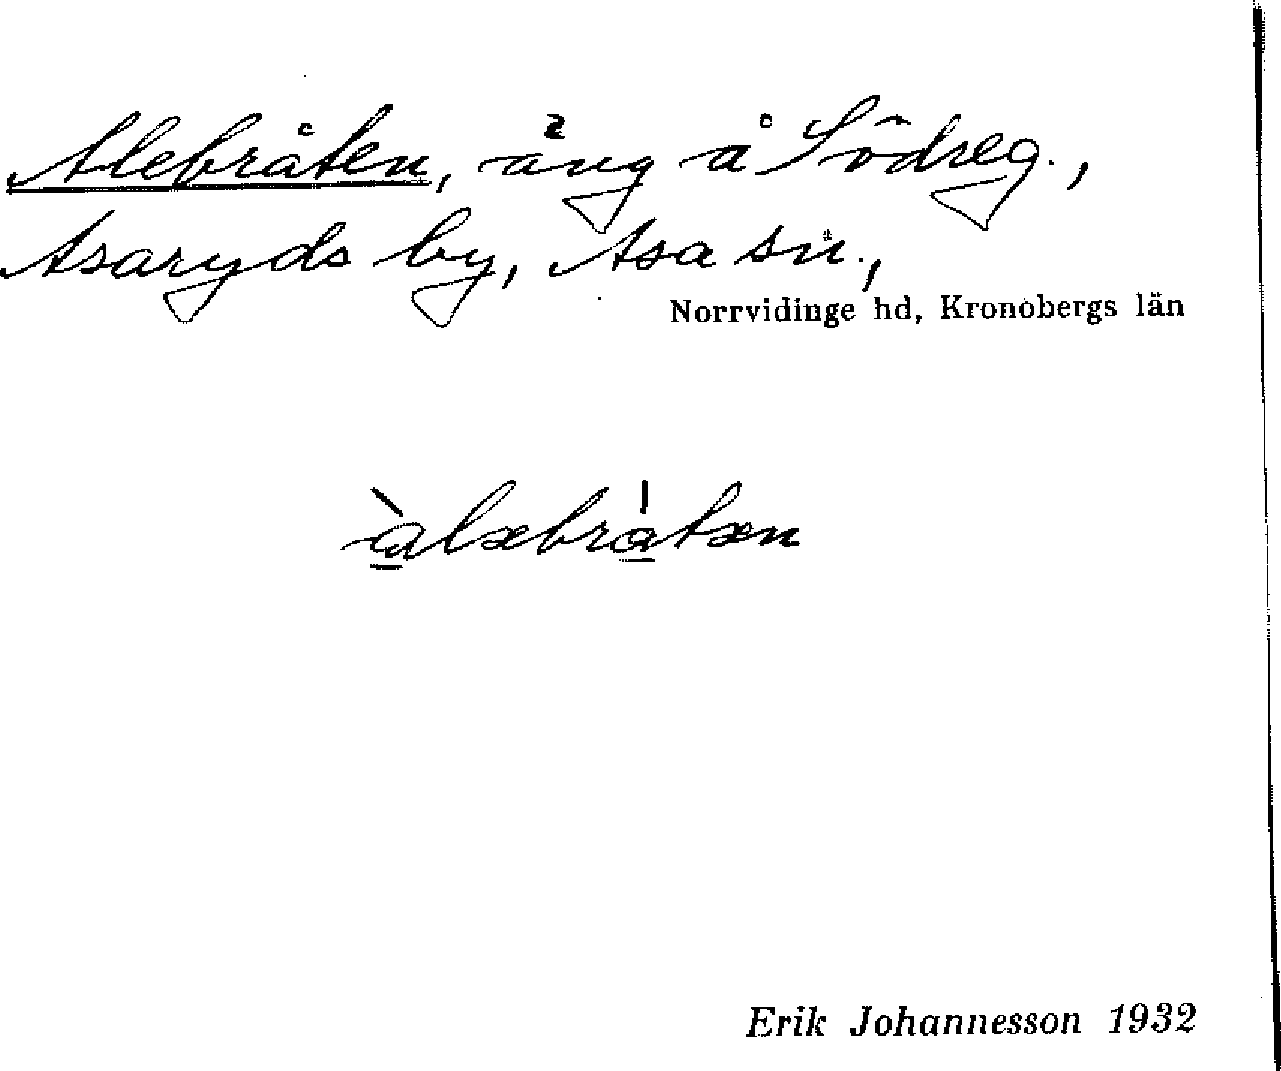 Alebråten, äng å Södreg.,
Asaryds by, Asa sn.,
Norrvidinge hd, Kronobergs län
àlæbråtæn
Erik Johannesson 1932